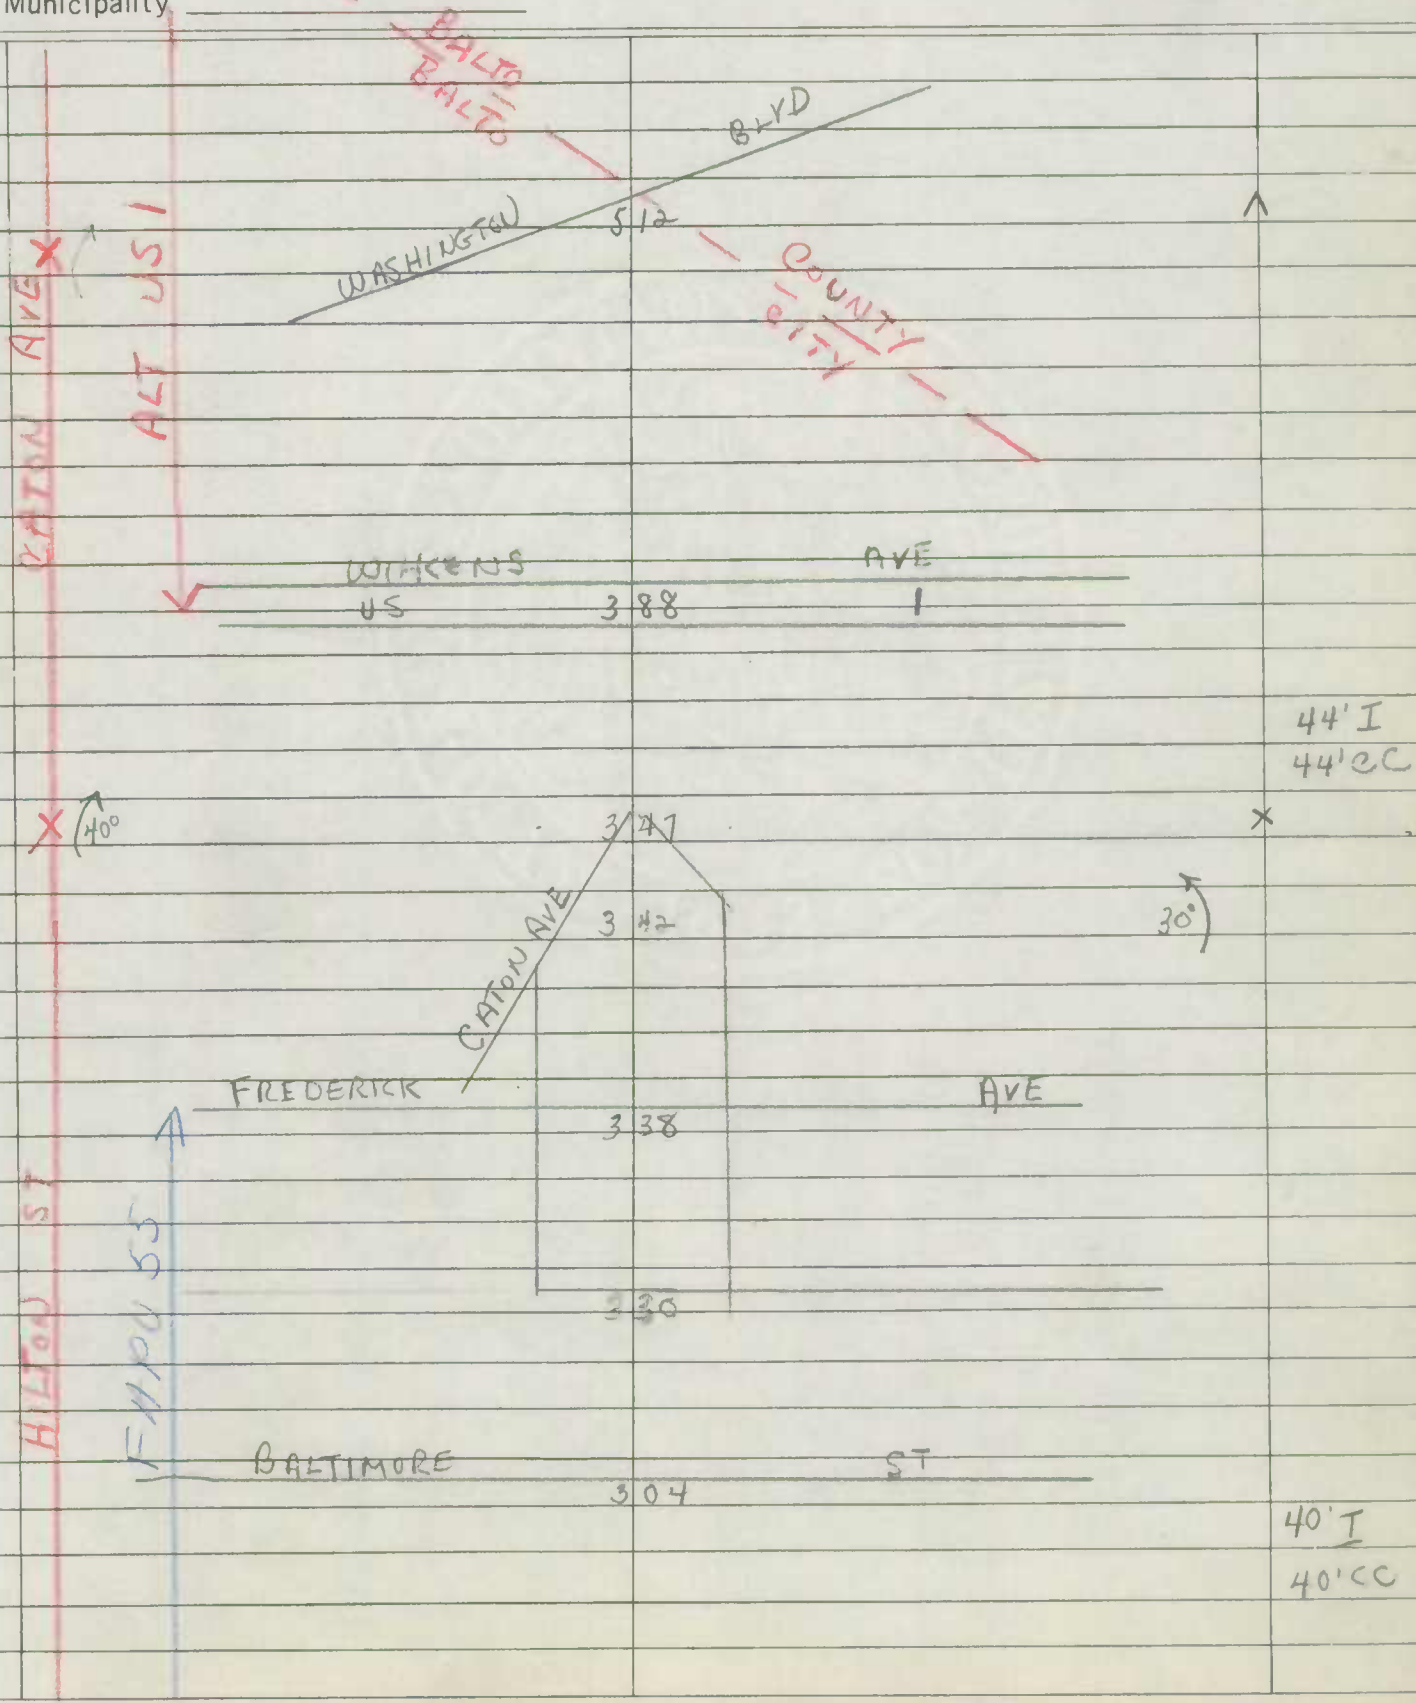 Municipality
BALTO
BALTO
BLVD
WASHINGTON
5 12
COUNTY
CITY
ALT US 1
CATON AVE
WILKENS AVE
US 3 88 1
44' I
44' CC
40°
3 47
3 42
30°
CATON AVE
FREDERICK AVE
3 38
HILTON ST
FHPU 55
3 30
BALTIMORE ST
3 04
40' I
40' CC